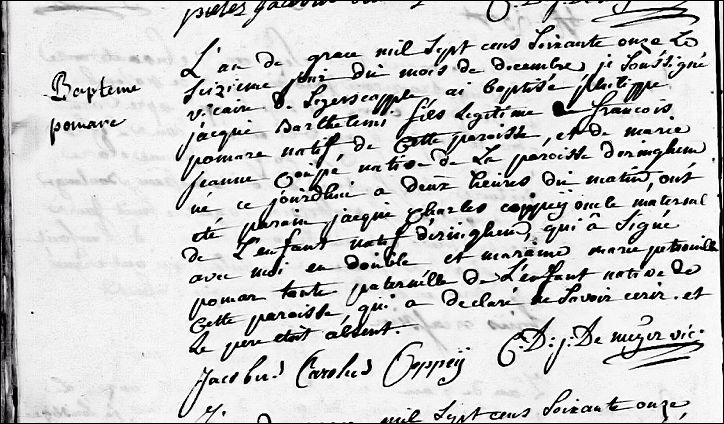 Bapteme
pomare
L'an de grace mil sept cens soixante onze Le
seizieme jour du mois de decembre je soussigné
vicaire de Lezerscapple ai baptisé philippe
jacque Barthelemi fils Legitime de francois
pomare natif de cette paroisse, et de marie
jeanne Coppé native de La paroisse deringhem
né ce jourdhui a deux heures du matin, ont
eté parain jacque charles coppeÿ oncle maternel
de L'enfant natif d'eringhem, qui â signé
avec moi en double et maraine marie petronille
pomar tante paternelle de L'enfant native de
Cette paroisse, qui a declaré ne savoir ecrir. et
Le pere etoit absent.
Jacobus Carolus Coppeÿ C: D: j: De meÿer vic:
mil sept cens soixante onze